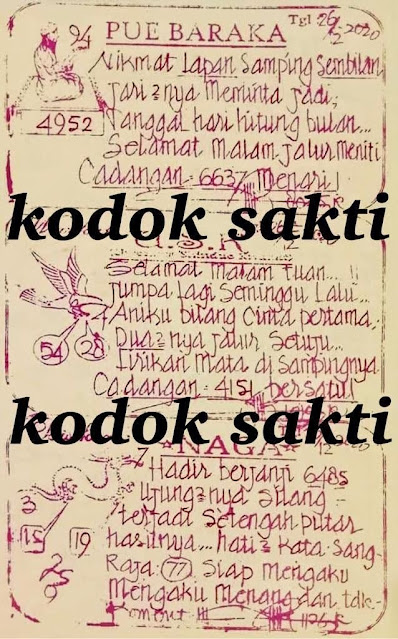 94 PUE BARAKA Tgl 26/12-2020
Nikmat Lapan Samping Sembilan,
Jari 2nya Meminta Jadi;
Tanggal hari hitung bulan...
4952
Selamat Malam, Jalur Meniti
Cadangan: 6637 Menari
kodok sakti
Selamat Malam Tuan...!!
Jumpa lagi Seminggu Lalu...
Aniku bilang Cinta pertama.
54 28
Dua2nya Jalur Setuju...
Lirikan Mata di Sampingnya
Cadangan: 4151 bersatu
kodok sakti
7 *NAGA*
Hadir berjanji 6485
Ujung2nya Silang
3
terjadi Setengah putar
15 19
harinya... hati2 Kata Sang-
Raja. 77 Siap Mengaku
Mengaku Menang dan tak-